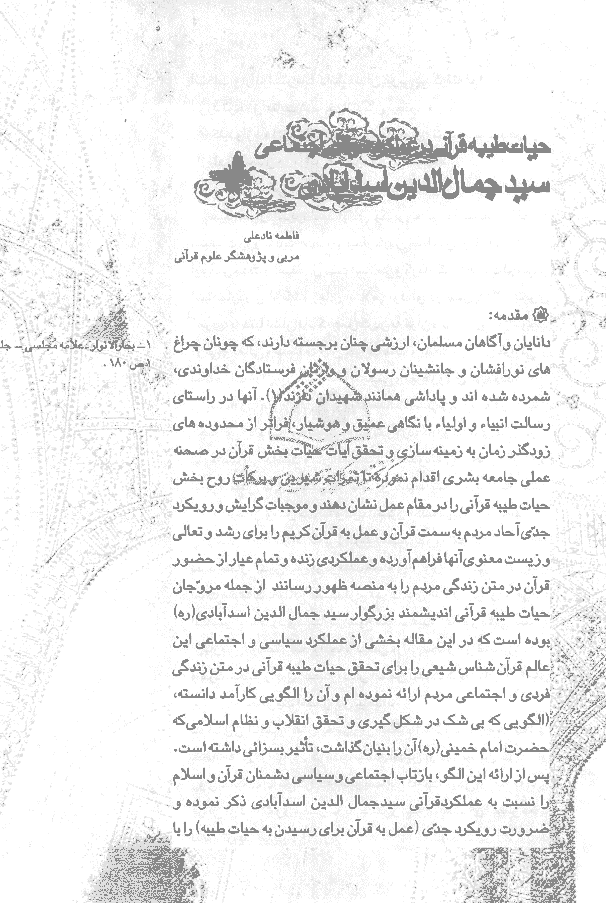 حیات طیبه قرآنی در اجتماعی
سید جمال الدین اسدآبادی
فاطمه نادعلی
مربی و پژوهشگر علوم قرآنی
مقدمه:
دانایان و آگاهان مسلمان، ارزشی چنان برجسته دارند، که چونان چراغ
های نورافشان و جانشینان رسولان و وارثان فرستادگان خداوندی،
شمرده شده اند و پاداشی همانند شهیدان دارند(۱). آنها در راستای
رسالت انبیاء و اولیاء با نگاهی عمیق و هوشیار، فراتر از محدوده های
زودگذر زمان به زمینه سازی و تحقق آیات حیات بخش قرآن در صحنه
عملی جامعه بشری اقدام نموده تا ثمرات شیرین و برکات روح بخش
حیات طیبه قرآنی را در مقام عمل نشان دهند و موجبات گرایش و رویکرد
جدّی آحاد مردم به سمت قرآن و عمل به قرآن کریم را برای رشد و تعالی
و زیست معنوی آنها فراهم آورده و عملکردی زنده و تمام عیار از حضور
قرآن در متن زندگی مردم را به منصه ظهور رسانند از جمله مروّجان
حیات طیبه قرآنی اندیشمند بزرگوار سید جمال الدین اسدآبادی(ره)
بوده است که در این مقاله بخشی از عملکرد سیاسی و اجتماعی این
عالم قرآن شناس شیعی را برای تحقق حیات طیبه قرآنی در متن زندگی
فردی و اجتماعی مردم ارائه نموده ام و آن را الگویی کارآمد دانسته،
(الگویی که بی شک در شکل گیری و تحقق انقلاب و نظام اسلامی که
حضرت امام خمینی(ره) آن را بنیان گذاشت، تأثیر بسزائی داشته است.
پس از ارائه این الگو، بازتاب اجتماعی و سیاسی دشمنان قرآن و اسلام
را نسبت به عملکرد قرآنی سید جمال الدین اسدآبادی ذکر نموده و
ضرورت رویکرد جدّی (عمل به قرآن برای رسیدن به حیات طیبه) را با
۱ــ بحارالانوار ـ علامه مجلسی – جل
ص ۱۸۰ .